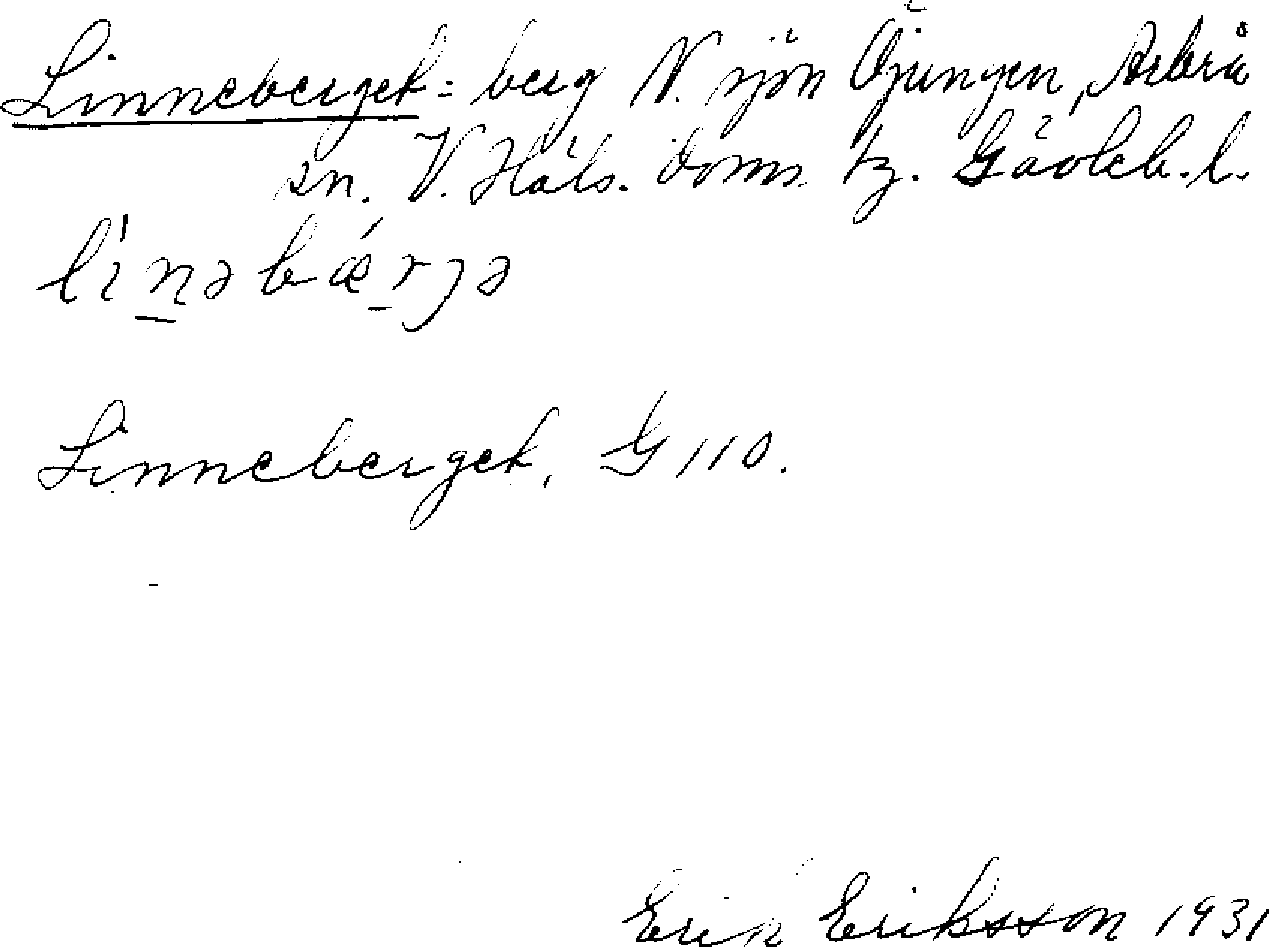 Linneberget = berg N. sjön Öjungen, Arbrå
sn. V. Häls. doms. tg. Gävleb. l.
li̍nəbǽrjə
Linneberget, G 110.
Erik Eriksson 1931